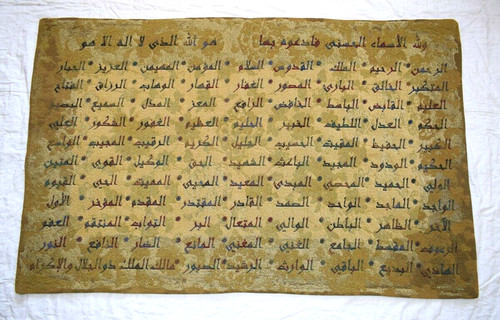 ولله الأسماء الحسنى فادعوه بها هو الله الذي لا اله الا هو
الرحمن الرحيم الملك القدوس السلام المؤمن المهيمن العزيز الجبار
المتكبر الخالق البارئ المصور الغفار القهار الوهاب الرزاق الفتاح
العليم القابض الباسط الخافض الرافع المعز المذل السميع البصير
الحكم العدل اللطيف الخبير الحليم العظيم الغفور الشكور العلي
الكبير الحفيظ المقيت الحسيب الجليل الكريم الرقيب المجيب الواسع
الحكيم الودود المجيد الباعث الشهيد الحق الوكيل القوي المتين
الولي الحميد المحصي المبدئ المعيد المحيي المميت الحي القيوم
الواجد الماجد الواحد الصمد القادر المقتدر المقدم المؤخر الأول
الآخر الظاهر الباطن الوالي المتعال البر التواب المنتقم العفو
الرءوف المقسط الجامع الغني المغني المانع الضار النافع النور
الهادي البديع الباقي الوارث الرشيد الصبور مالك الملك ذو الجلال والإكرام